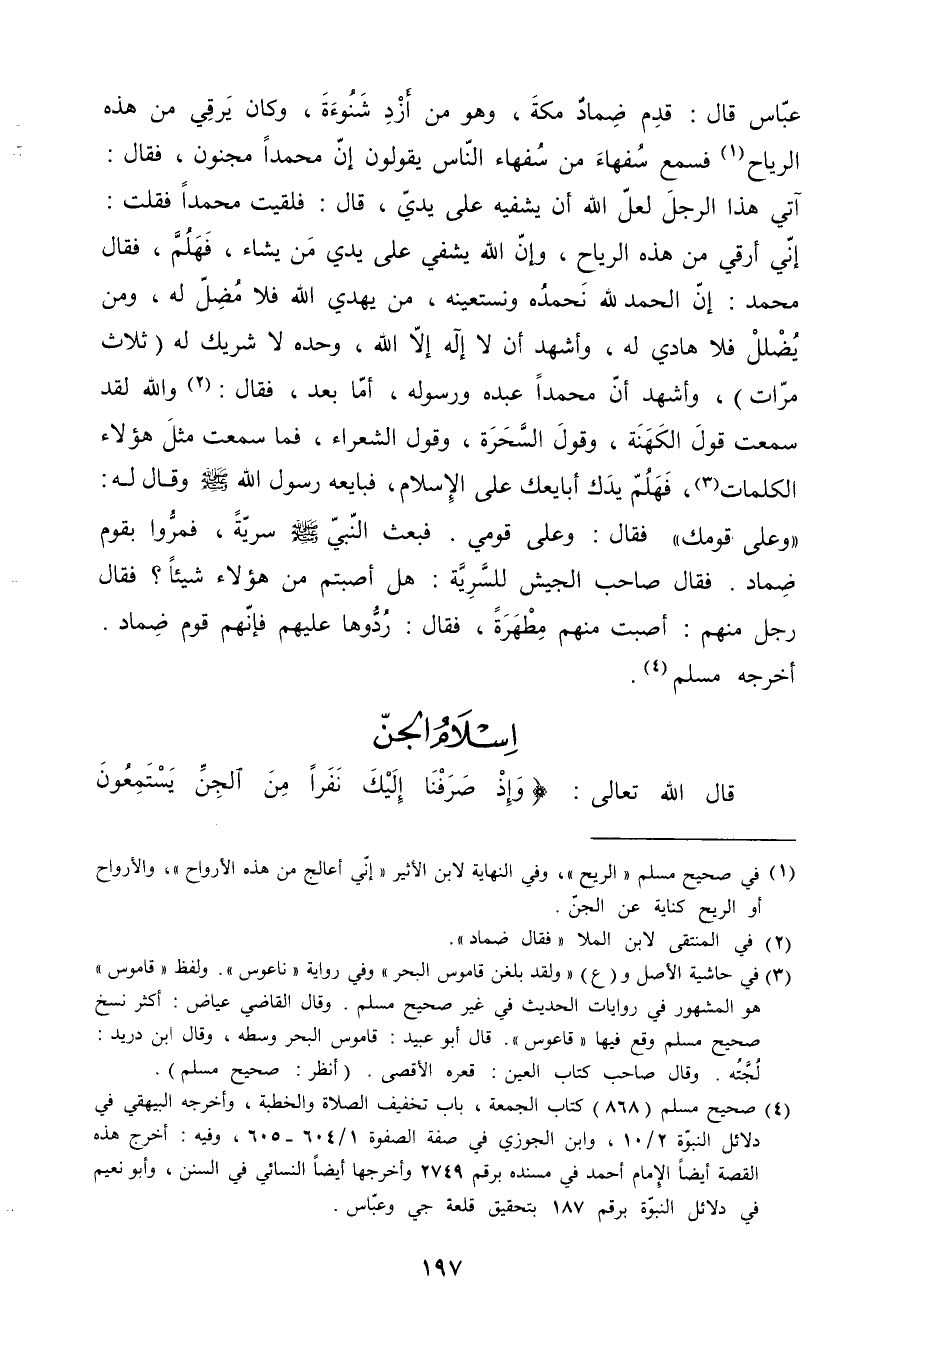 عبّاس قال : قدِم ضِمادٌ مكةَ ، وهو من أَزْدِ شَنُوءَةَ ، وكان يَرقِي من هذه
الرياح(١) فسمع سُفهاءَ من سُفهاء النّاس يقولون إنّ محمداً مجنون ، فقال :
آتي هذا الرجلَ لعلّ الله أن يشفيه على يديّ ، قال : فلقيت محمداً فقلت :
إنّي أرقي من هذه الرياح ، وإنّ الله يشفي على يدي مَن يشاء ، فَهَلُمَّ ، فقال
محمد : إنّ الحمد لله نَحمدُه ونستعينه ، من يهدي الله فلا مُضِلّ له ، ومن
يُضْللْ فلا هادي له ، وأشهد أن لا إلٰه إلّا الله ، وحده لا شريك له ( ثلاث
مرّات ) ، وأشهد أنّ محمداً عبده ورسوله ، أمّا بعد ، فقال :(٢) والله لقد
سمعت قولَ الكَهَنَة ، وقولَ السَّحَرَة ، وقول الشعراء ، فما سمعت مثلَ هؤلاء
الكلمات(٣)، فَهَلُمّ يدَك أبايعك على الإسلام، فبايعه رسول الله ﷺ وقـال لـه:
«وعلى قومك» فقال : وعلى قومي . فبعث النّبيّ ﷺ سريّةً ، فمرُّوا بقوم
ضِماد . فقال صاحب الجيش للسَّرِيَّة : هل أصبتم من هؤلاء شيئاً ؟ فقال
رجل منهم : أصبت منهم مِطْهَرَةً ، فقال : رُدُّوها عليهم فإنّهم قوم ضِماد .
أخرجه مسلم(٤) .
إسْلَامُ الجنّ
قال الله تعالى : ﴿ وَإِذْ صَرَفْنَا إِلَيْكَ نَفَراً مِنَ ٱلجِنِّ يَسْتَمِعُونَ
(١) في صحيح مسلم « الريح »، وفي النهاية لابن الأثير « إنّي أعالج من هذه الأرواح »، والأرواح
أو الريح كناية عن الجنّ .
(٢) في المنتقى لابن الملا « فقال ضماد ».
(٣) في حاشية الأصل و( ع) « ولقد بلغن قاموس البحر » وفي رواية « ناعوس ». ولفظ « قاموس »
هو المشهور في روايات الحديث في غير صحيح مسلم . وقال القاضي عياض : أكثر نسخ
صحيح مسلم وقع فيها « قاعوس ». قال أبو عبيد : قاموس البحر وسطه ، وقال ابن دريد :
لُجَّتُه . وقال صاحب كتاب العين : قعره الأقصى . (أنظر : صحيح مسلم ) .
(٤) صحيح مسلم ( ٨٦٨ ) كتاب الجمعة ، باب تخفيف الصلاة والخطبة ، وأخرجه البيهقي في
دلائل النبوّة ١٠/٢ ، وابن الجوزي في صفة الصفوة ٦٠٤/١ ـ ٦٠٥ ، وفيه : أخرج هذه
القصة أيضاً الإمام أحمد في مسنده برقم ٢٧٤٩ وأخرجها أيضاً النسائي في السنن ، وأبو نعيم
في دلائل النبوّة برقم ١٨٧ بتحقيق قلعة جي وعبّاس .
١٩٧